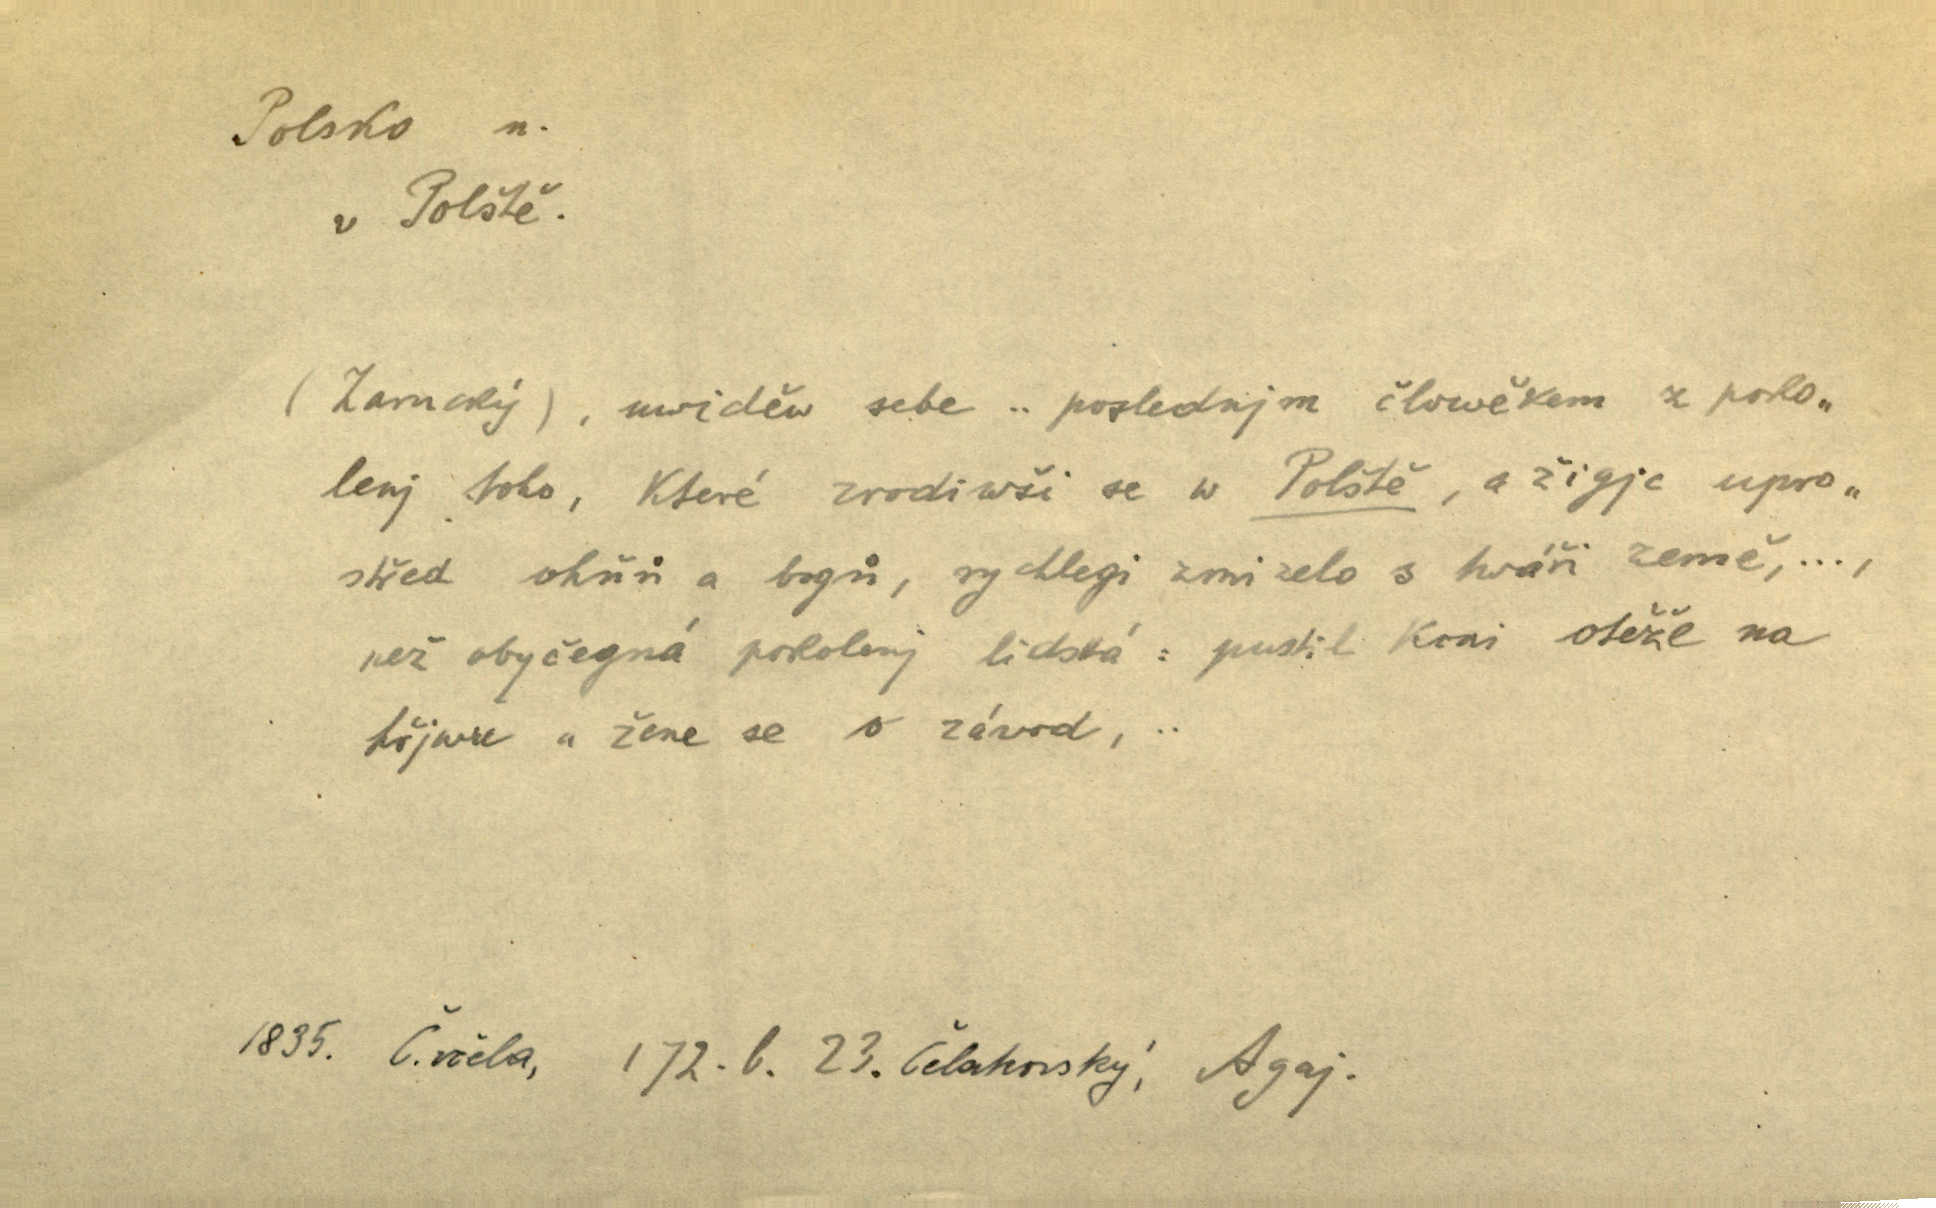 Polsko n.
v Polště.
(Zarucký), uwiděw sebe .. poslednjm člowěkem z poko„
lenj toho, které zrodiwši se w Polště, a žigjc upro„
střed ohňů a bogů, rychlegi zmizelo s twáři země, ...,
než obyčegná pokolenj lidská: pustil koni otěže na
hřjwu a žene se o závod, ..
1835. Č. včela, 172. b. 23. Čelakovský, Agaj.